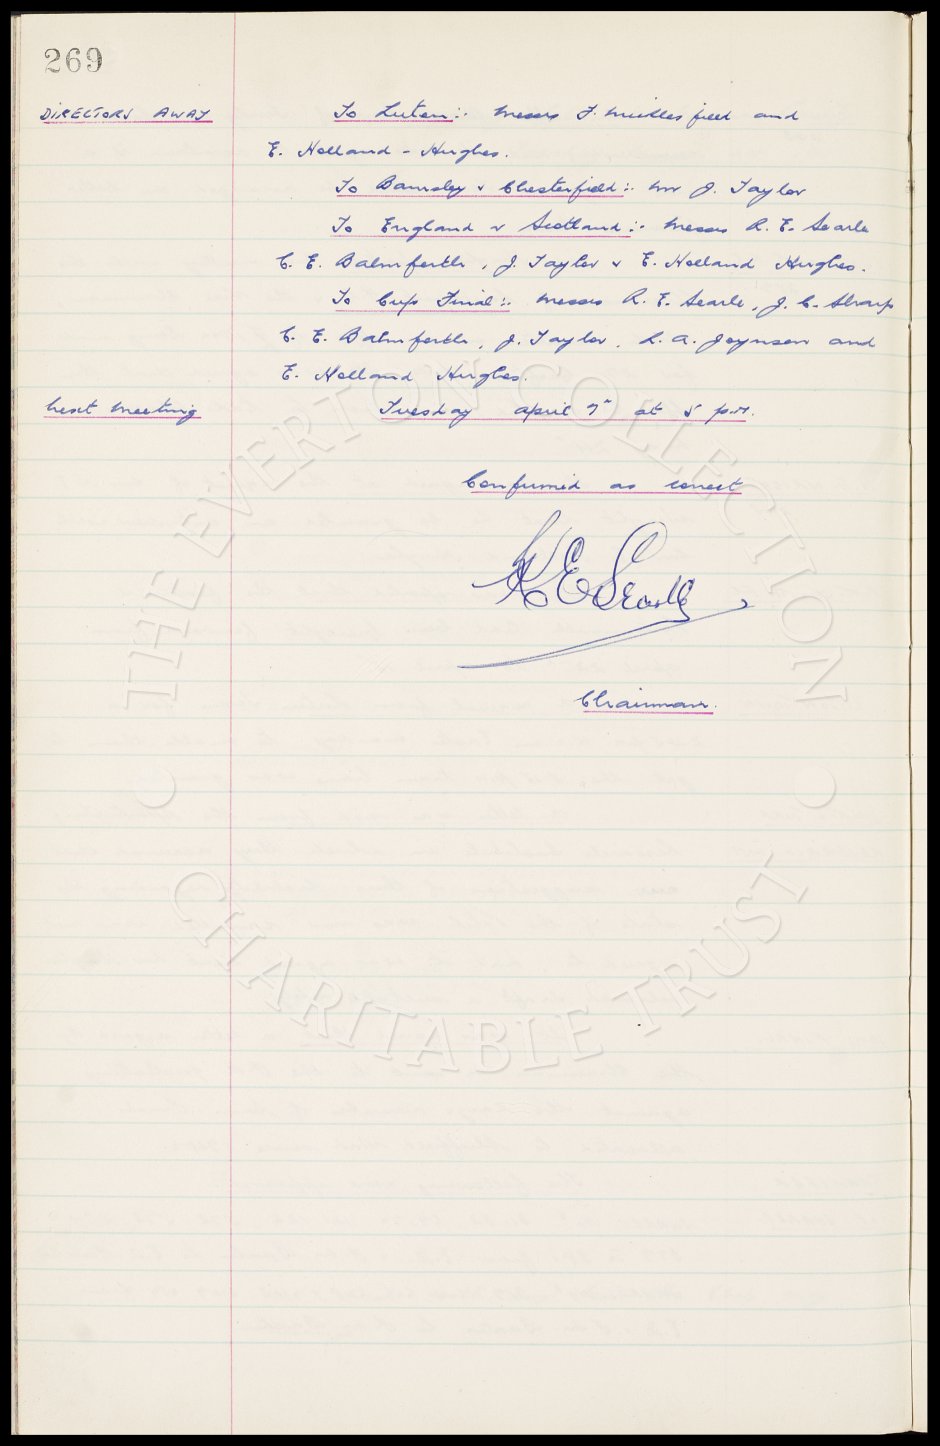 269
DIRECTORS AWAY
To Luton:- Messrs F. Micklesfield and
E. Holland - Hughes.
To Barnsley v Chesterfield:- Mr J. Taylor
To England v Scotland:- Messrs R. E. Searle
C. E. Balmforth, J. Taylor & E. Holland Hughes.
To Cup Final:- Messrs R. E. Searle, J. C. Sharp
C. E. Balmforth, J. Taylor, R. A. Joynson and
E. Holland Hughes.
Next Meeting
Tuesday April 7" at 5 p.m.
Confirmed as correct
R E Searle
Chairman.
THE EVERTON COLLECTION
CHARITABLE TRUST